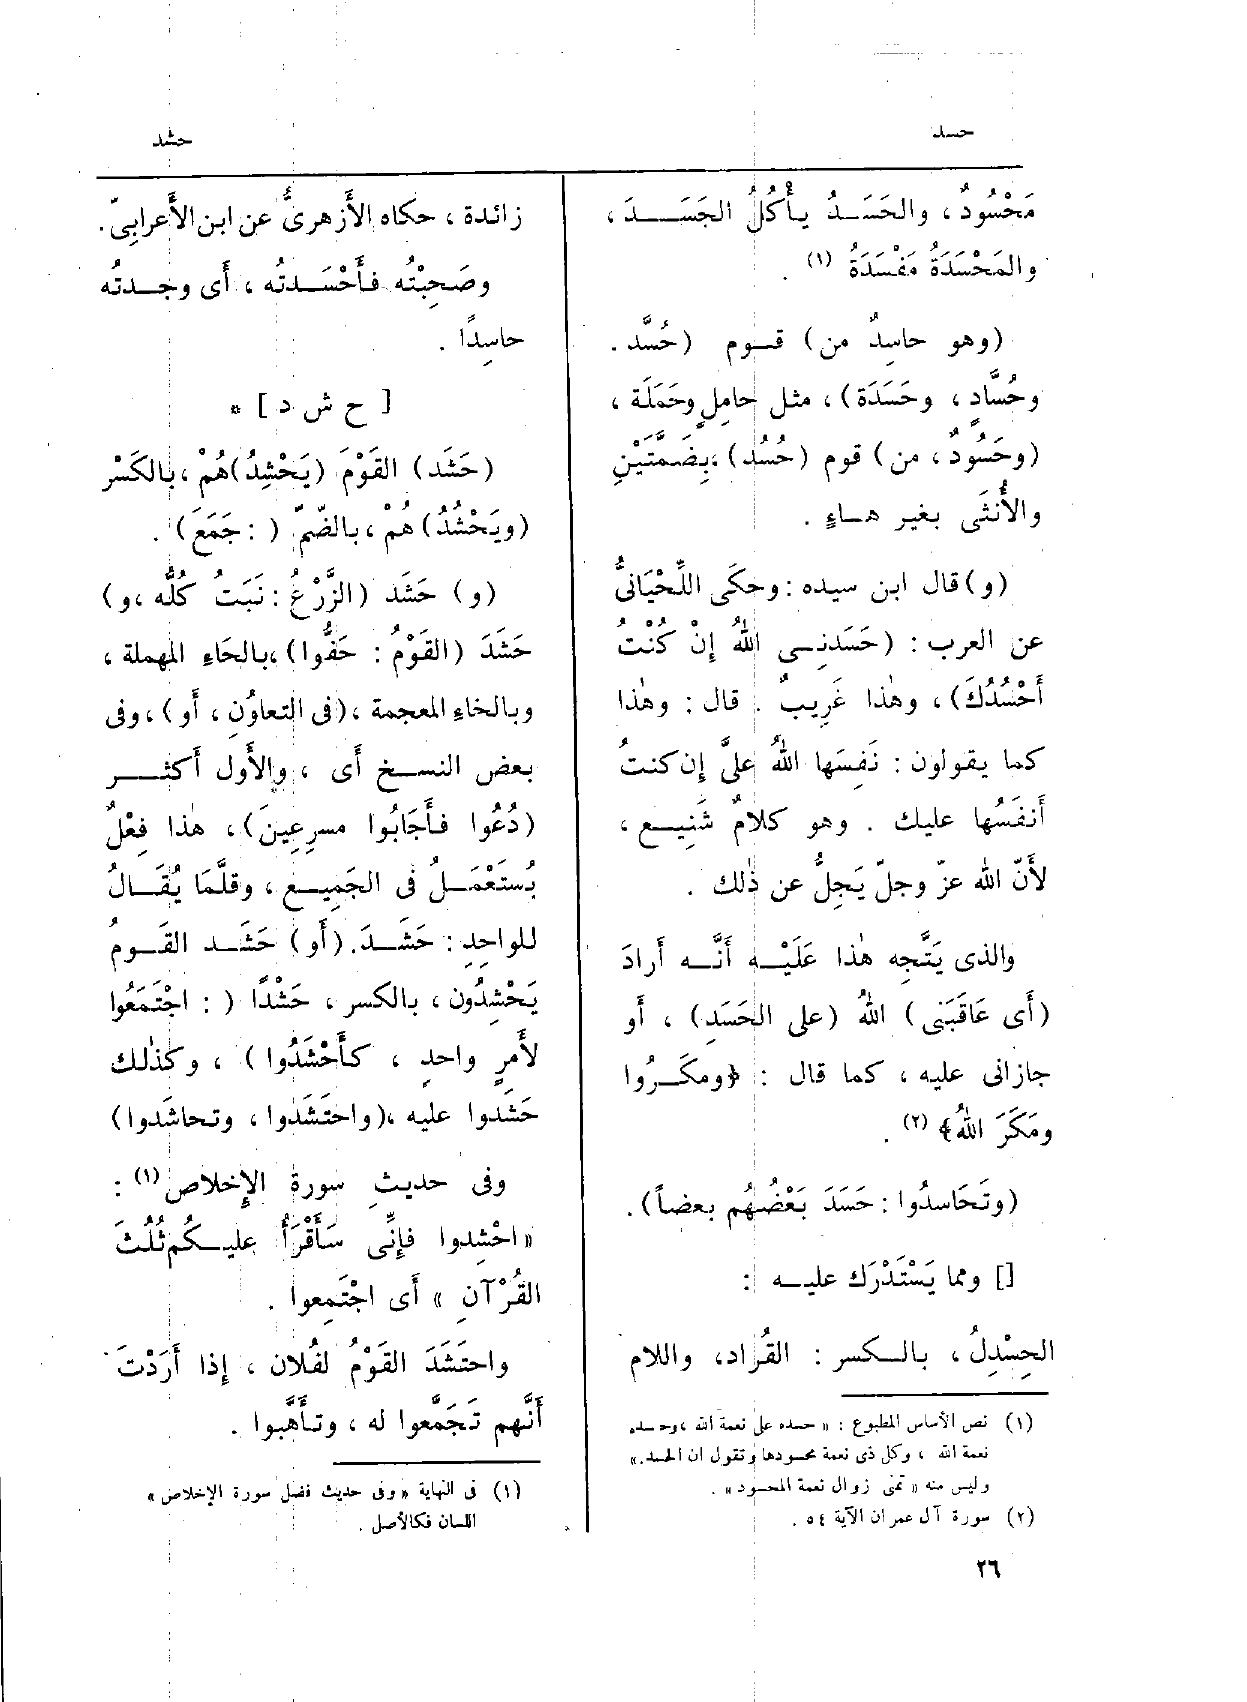 حسد
حشد
مَحْسُودٌ ، والحَسَدُ يأْكُلُ الجَسَدَ ،
والمَحْسَدَةُ مَفْسَدَةٌ (١) .
(وهو حاسِدٌ من) قوم (حُسَّد .
وحُسَّادٍ ، وحَسَدَة) ، مثل حامِلٍ وحَمَلَة ،
(وحَسُودٌ ، من) قوم (حُسُد) ، بِضَمَّتَيْنِ
والأُنثَى بغير هاءٍ .
(و) قال ابن سيده : وحكَى اللِّحْيَانىُّ
عن العرب : (حَسَدَنِى اللهُ إِنْ كُنْتُ
أَحْسُدُكَ) ، وهٰذا غَرِيبٌ . قال : وهٰذا
كما يقولون : نَفِسَها اللهُ علىَّ إِن كنتُ
أَنفَسُها عليك . وهو كلامٌ شَنِيع ،
لأَنّ الله عزّ وجلّ يَجِلُّ عن ذٰلك .
والذى يَتَّجِه هٰذا عَلَيْه أَنَّه أَرادَ
(أَى عَاقَبَنى) اللهُ (على الحَسَدِ) ، أَو
جازانى عليه ، كما قال : ﴿ومكَرُوا
ومَكَرَ اللهُ﴾ (٢) .
(وتَحَاسدُوا : حَسَدَ بَعْضُهُم بعضاً) .
[] ومما يَسْتَدْرَك عليه :
الحِسْدِلُ ، بالكسر : القُرَاد، واللام
(١) نص الأساس المطبوع : « حسده على نعمة الله ، وحسده
نعمة الله ، وكل ذى نعمة محسودها وتقول ان الحسد.»
وليس منه « تمنى زوال نعمة المحسود» .
(٢) سورة آل عمران الآية ٥٤ .
زائدة ، حكاه الأَزهرىُّ عن ابن الأَعرابِىّ.
وصَحِبْتُه فأَحْسَدتُه ، أَى وجدتُه
حاسِدًا .
[ ح ش د ] *
(حَشَد) القَوْمَ (يَحْشِدُ)هُمْ ، بالكَسْر
(ويَحْشُدُ)هُمْ ، بالضّمّ ( : جَمَعَ) .
(و) حَشَد (الزَّرْعُ : نَبَتَ كُلُّه ، و)
حَشَدَ (القَوْمُ : حَفُّوا) ، بالحَاءِ المهملة ،
وبالخاءِ المعجمة ، (فى التعاوُنِ ، أَو) ، وفى
بعض النسخ أَى ، والأَول أَكثر
(دُعُوا فأَجَابُوا مسرِعِينَ) ، هٰذا فِعْلٌ
يُستَعْمَلُ فى الجَمِيع ، وقلَّمَا يُقَالُ
للواحِدِ : حَشَدَ. (أَو) حَشَد القَومُ
يَحْشِدُون ، بالكسر ، حَشْدًا ( : اجْتَمَعُوا
لأَمرٍ واحدٍ ، كأَحْشَدُوا) ، وكذٰلك
حَشَدوا عليه ، (واحتَشَدوا ، وتحاشَدوا)
وفى حديثِ سورة الإِخلاص (١) :
« احْشِدوا فإِنِّى سَأَقْرَأُ عليكُم ثُلُثَ
القُرْآنِ » أَى اجْتَمِعوا .
واحتَشَدَ القَوْمُ لفُلان ، إِذا أَرَدْتَ
أَنَّهم تَجَمَّعوا له ، وتأَهَّبوا .
(١) فى النهاية « وفى حديث فضل سورة الإخلاص »
اللسان فكالأصل .
٢٦